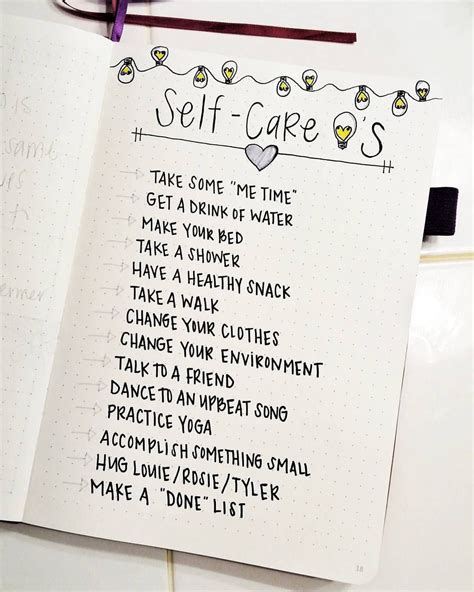 Self-Care 's
TAKE SOME "ME TIME"
GET A DRINK OF WATER
MAKE YOUR BED
TAKE A SHOWER
HAVE A HEALTHY SNACK
TAKE A WALK
CHANGE YOUR CLOTHES
CHANGE YOUR ENVIRONMENT
TALK TO A FRIEND
DANCE TO AN UPBEAT SONG
PRACTICE YOGA
ACCOMPLISH SOMETHING SMALL
HUG LOUIE/ROSIE/TYLER
MAKE A "DONE" LIST